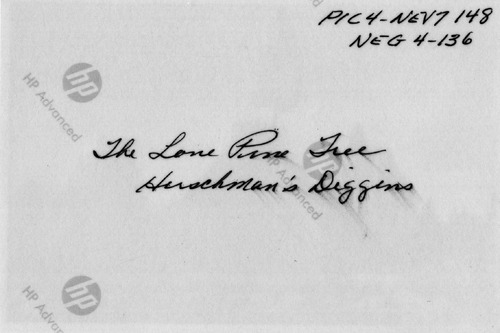 PIC4-NEV7 148
NEG 4-136
HP Advanced
The Lone Pine Tree
Hirschman's Diggins
HP Advanced
HP Advanced